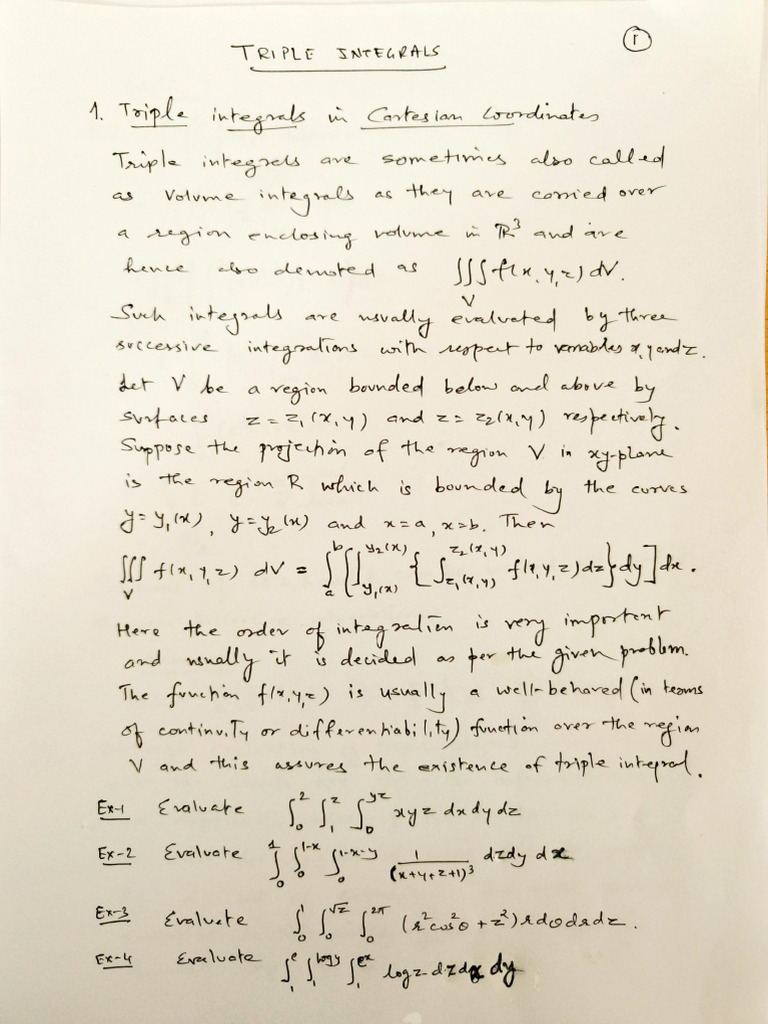 TRIPLE INTEGRALS
1
1. Triple integrals in Cartesian Coordinates
Triple integrals are sometimes also called
as Volume integrals as they are carried over
a region enclosing volume in ℝ³ and are
hence also denoted as ∭_V f(x,y,z) dV.
Such integrals are usually evaluated by three
successive integrations with respect to variables x, y and z.
Let V be a region bounded below and above by
surfaces z = z₁(x,y) and z = z₂(x,y) respectively.
Suppose the projection of the region V in xy-plane
is the region R which is bounded by the curves
y = y₁(x), y = y₂(x) and x=a, x=b. Then
∭_V f(x,y,z) dV = ∫_a^b [∫_{y₁(x)}^{y₂(x)} { ∫_{z₁(x,y)}^{z₂(x,y)} f(x,y,z) dz } dy ] dx.
Here the order of integration is very important
and usually it is decided as per the given problem.
The function f(x,y,z) is usually a well-behaved (in terms
of continuity or differentiability) function over the region
V and this assures the existence of triple integral.
Ex-1 Evaluate ∫_0^2 ∫_1^z ∫_0^{yz} xyz dx dy dz
Ex-2 Evaluate ∫_0^1 ∫_0^{1-x} ∫_0^{1-x-y} 1/(x+y+z+1)³ dz dy dx
Ex-3 Evaluate ∫_0^1 ∫_0^{√z} ∫_0^{2π} (r²cos²θ + z²) r dθ dr dz.
Ex-4 Evaluate ∫_1^e ∫_1^{log y} ∫_1^{e^x} log z dz dx dy